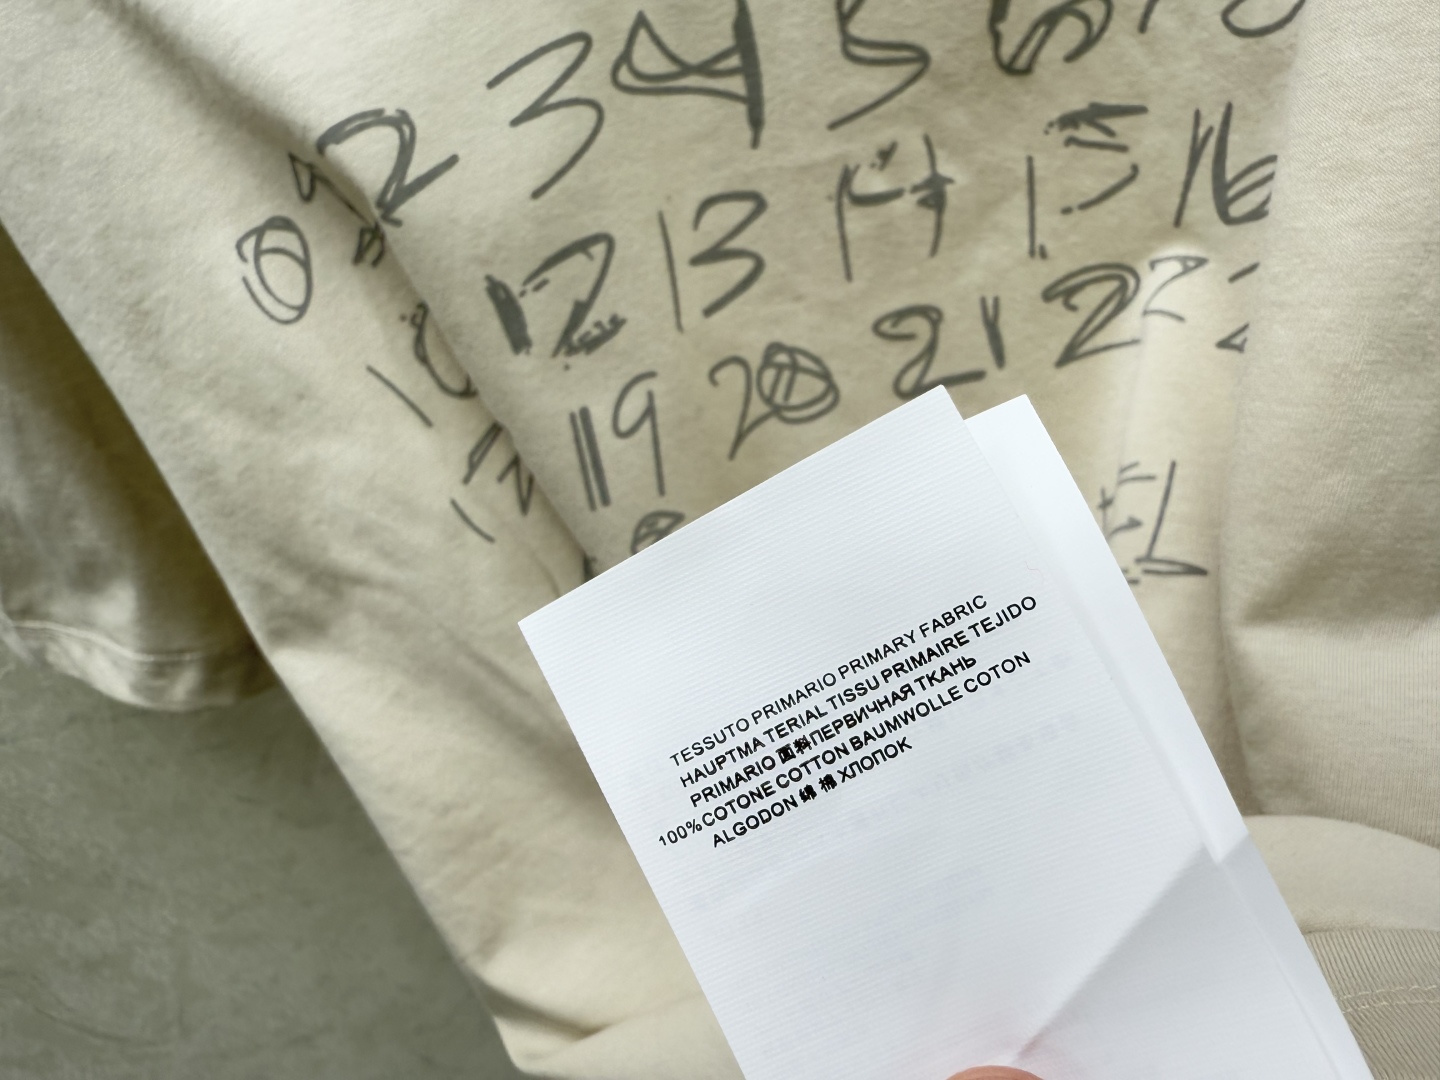 2 3 4 5 6 7 8
0
12 13 14 15 16
10
19 20 21 22
17
TESSUTO PRIMARIO PRIMARY FABRIC
HAUPTMA TERIAL TISSU PRIMAIRE TEJIDO
PRIMARIO 面料ПЕРВИЧНАЯ ТКАНЬ
100%COTONE COTTON BAUMWOLLE COTON
ALGODON 綿 棉 ХЛОПОК